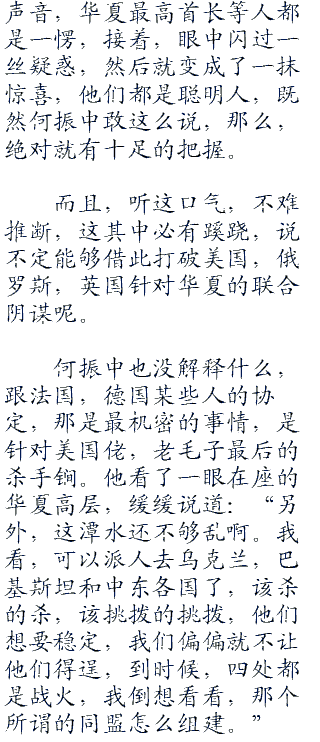 声音，华夏最高首长等人都
是一愣，接着，眼中闪过一
丝疑惑，然后就变成了一抹
惊喜，他们都是聪明人，既
然何振中敢这么说，那么，
绝对就有十足的把握。
而且，听这口气，不难
推断，这其中必有蹊跷，说
不定能够借此打破美国，俄
罗斯，英国针对华夏的联合
阴谋呢。
何振中也没解释什么，
跟法国，德国某些人的协
定，那是最机密的事情，是
针对美国佬，老毛子最后的
杀手锏。他看了一眼在座的
华夏高层，缓缓说道：“另
外，这潭水还不够乱啊。我
看，可以派人去乌克兰，巴
基斯坦和中东各国了，该杀
的杀，该挑拨的挑拨，他们
想要稳定，我们偏偏就不让
他们得逞，到时候，四处都
是战火，我倒想看看，那个
所谓的同盟怎么组建。”